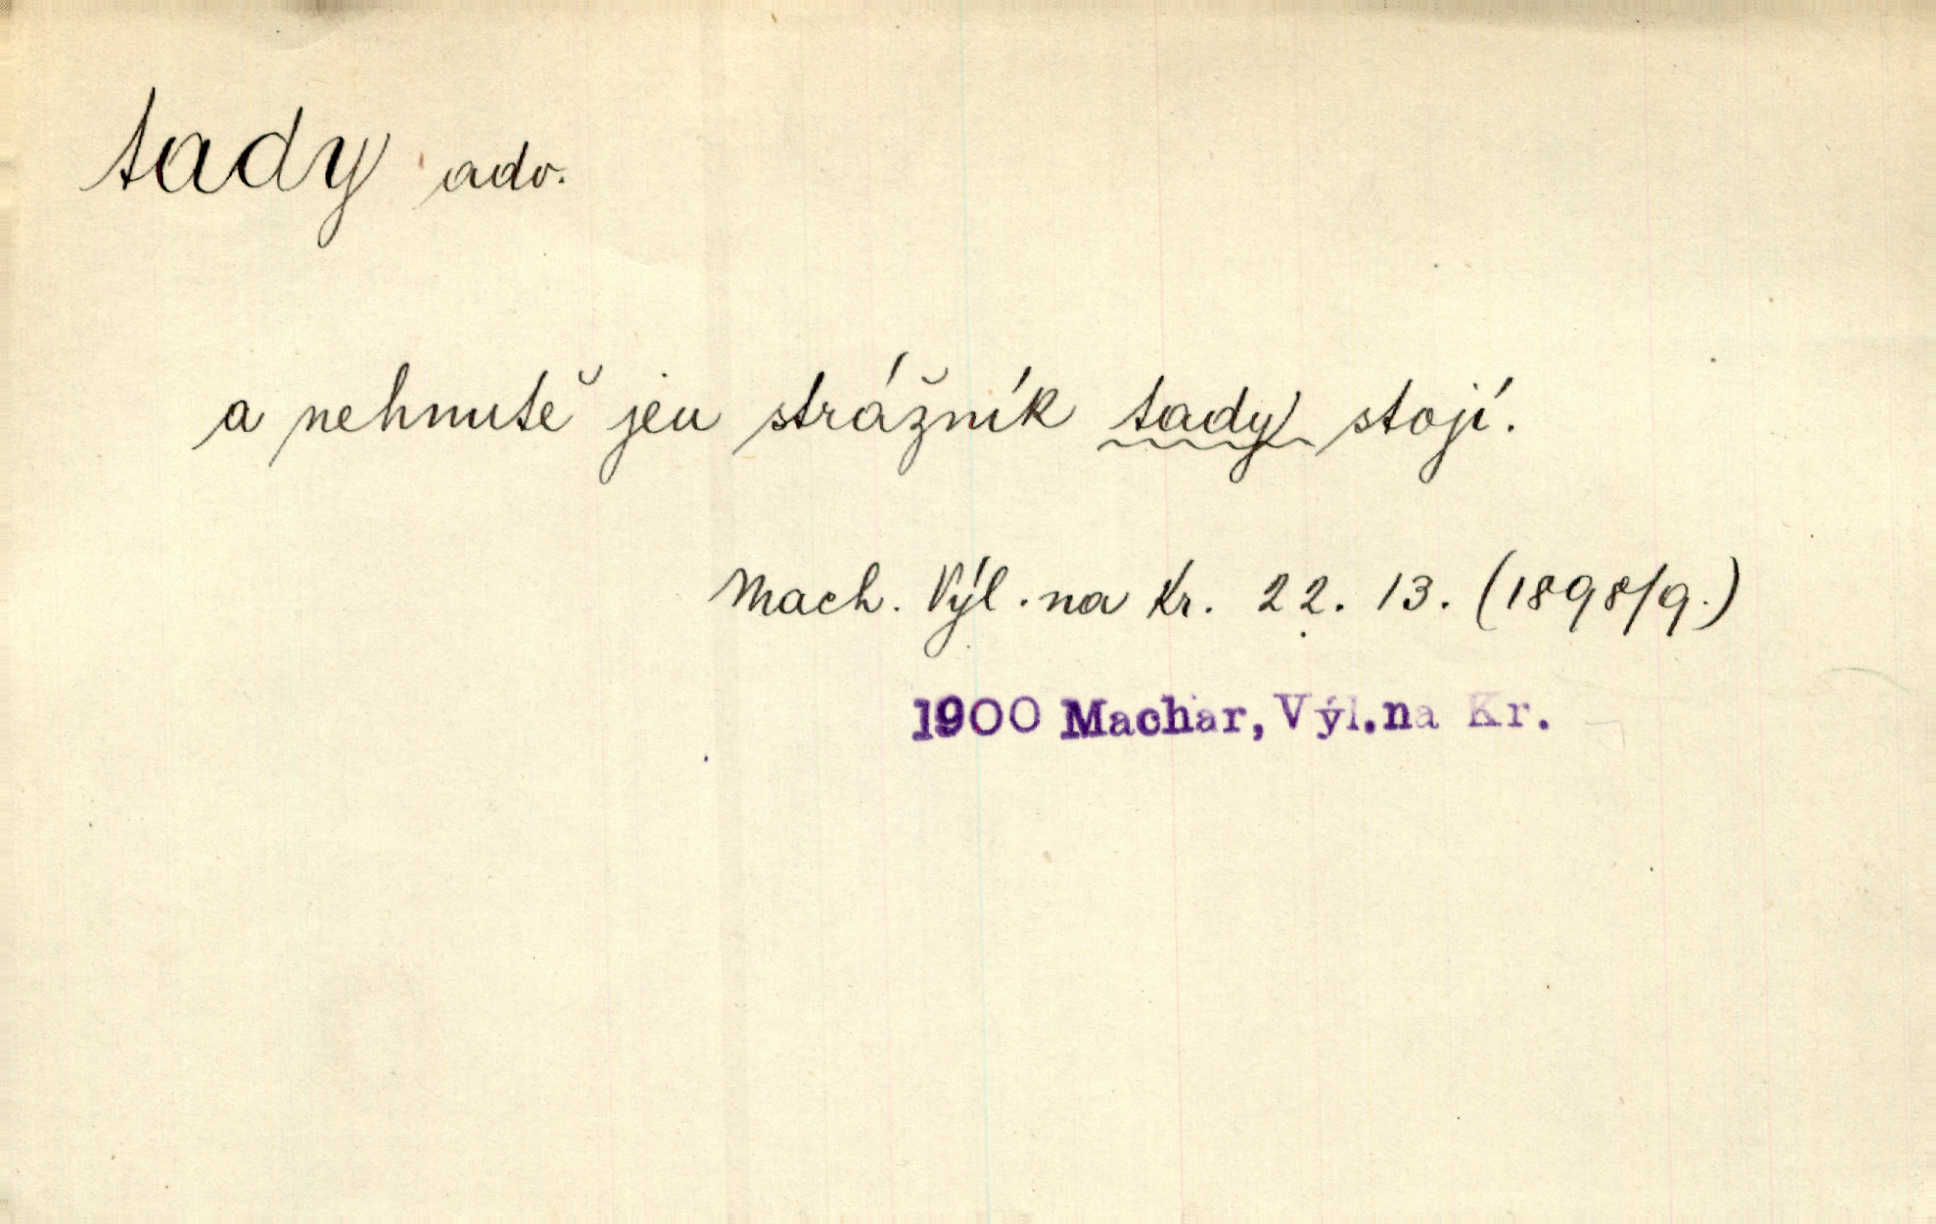 tady adv.
a nehnutě jen strážník tady stojí.
Mach. Výl. na Kr. 22. 13. (1898/9.)
1900 Machar, Výl.na Kr.